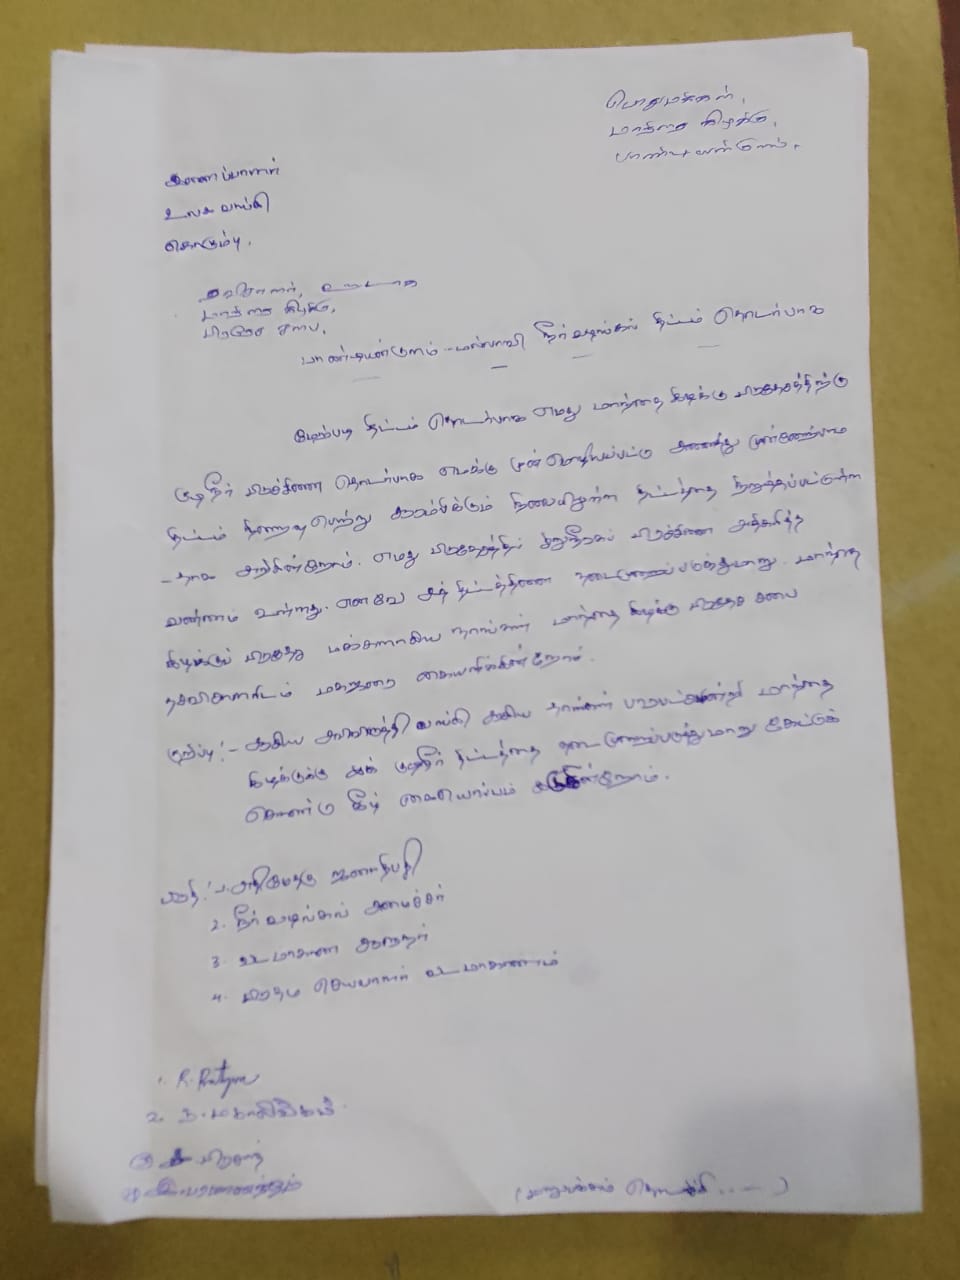 பொதுமக்கள்,
மாந்தை கிழக்கு,
பாண்டியன்குளம்.
இணைப்பாளர்
உலக வங்கி
கொழும்பு.
தவிசாளர், ஊடாக
மாந்தை கிழக்கு,
பிரதேச சபை,
பாண்டியன்குளம் - மல்லாவி நீர் வழங்கல் திட்டம் தொடர்பாக
மேற்படி திட்டம் தொடர்பாக எமது மாந்தை கிழக்கு பிரதேசத்திற்கு
குடிநீர் பிரச்சினை தொடர்பாக எமக்கு முன்மொழியப்பட்டு அனைத்து
திட்டம் பெற்று ஆரம்பிக்கும் நிலையிலுள்ள திட்டத்தை நிறுத்தப்பட்டுள்ள
-தாக அறிகின்றோம். எமது பிரதேசத்தில் சிறுநீரகப் பிரச்சினை அதிகரித்த
வண்ணம் உள்ளது. எனவே இத் திட்டத்தினை நடைமுறைப்படுத்துமாறு மாந்தை
கிழக்குப் பிரதேச மக்களாகிய நாங்கள் மாந்தை கிழக்கு பிரதேச சபை
தவிசாளரிடம் மகஜரை கையளிக்கின்றோம்.
குறிப்பு:- ஆசிய அபிவிருத்தி வங்கி ஆகிய நாங்கள் மாந்தை
கிழக்குக்கு இக் குடிநீர் திட்டத்தை நடைமுறைப்படுத்துமாறு கேட்டுக்
கொண்டு கீழ் கையொப்பம் இடுகின்றோம்.
பிரதி:- 1. அதிமேதகு ஜனாதிபதி
2. நீர் வழங்கல் அமைச்சர்
3. வட மாகாண ஆளுநர்
4. பிரதம செயலாளர் வட மாகாணம்
1. R.
2. த. மகாலிங்கம்